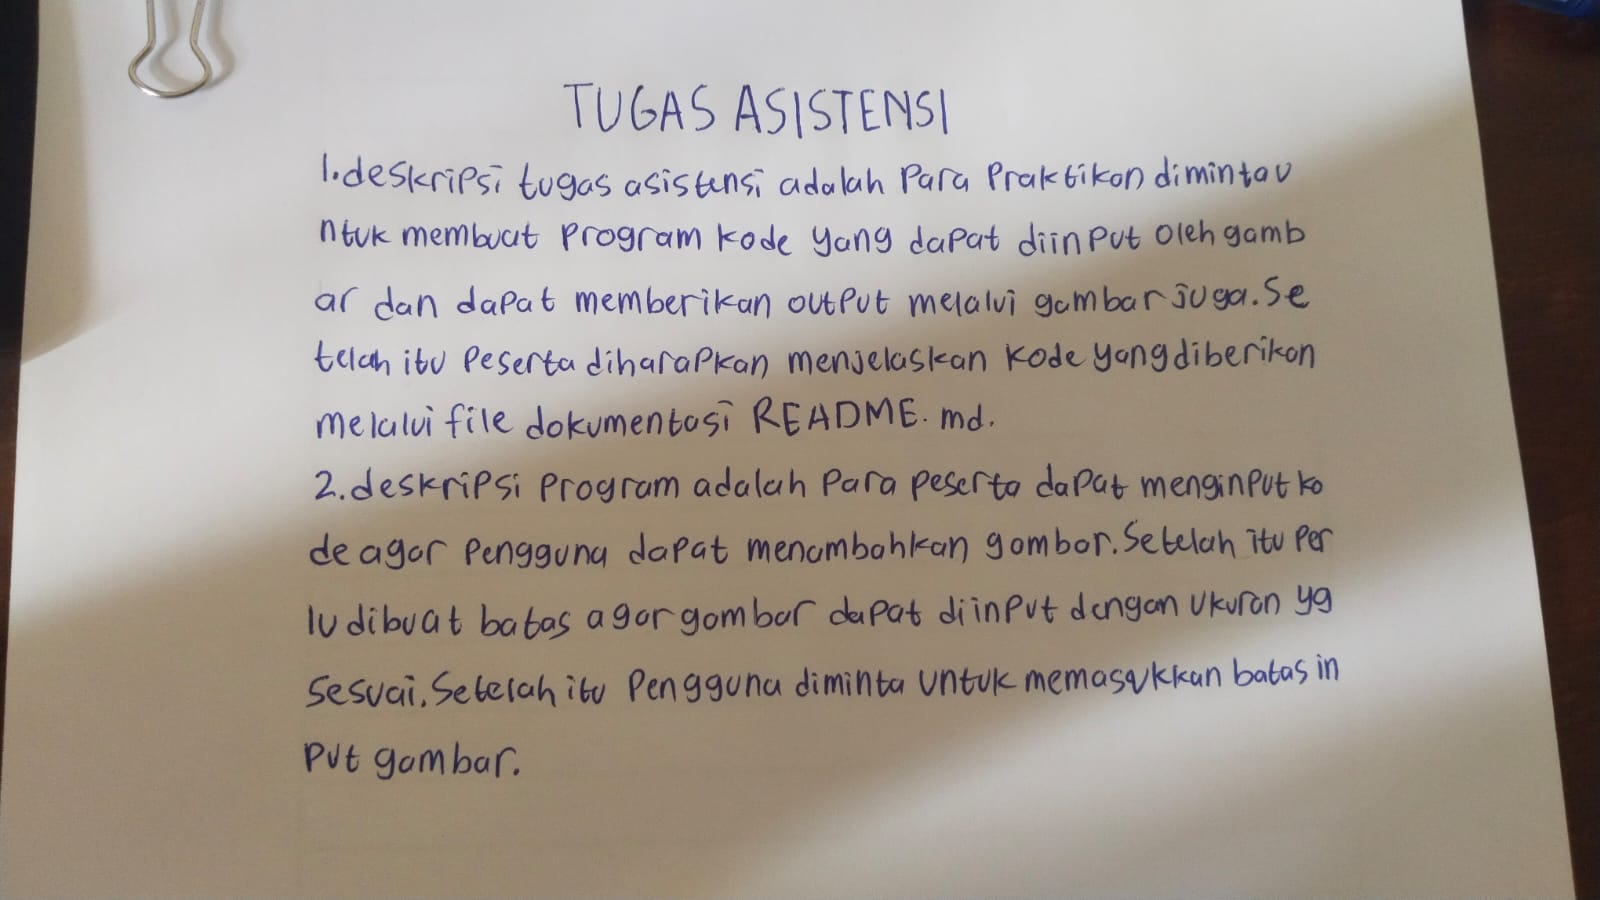 TUGAS ASISTENSI
1.deskripsi tugas asistensi adalah para praktikan diminta u
ntuk membuat program kode yang dapat diinput oleh gamb
ar dan dapat memberikan output melalui gambar juga. Se
telah itu peserta diharapkan menjelaskan kode yang diberikan
melalui file dokumentasi README.md.
2.deskripsi program adalah para peserta dapat menginput ko
de agar pengguna dapat menambahkan gambar. Setelah itu per
lu dibuat batas agar gambar dapat diinput dengan ukuran yg
sesuai. Setelah itu pengguna diminta untuk memasukkan batas in
put gambar.